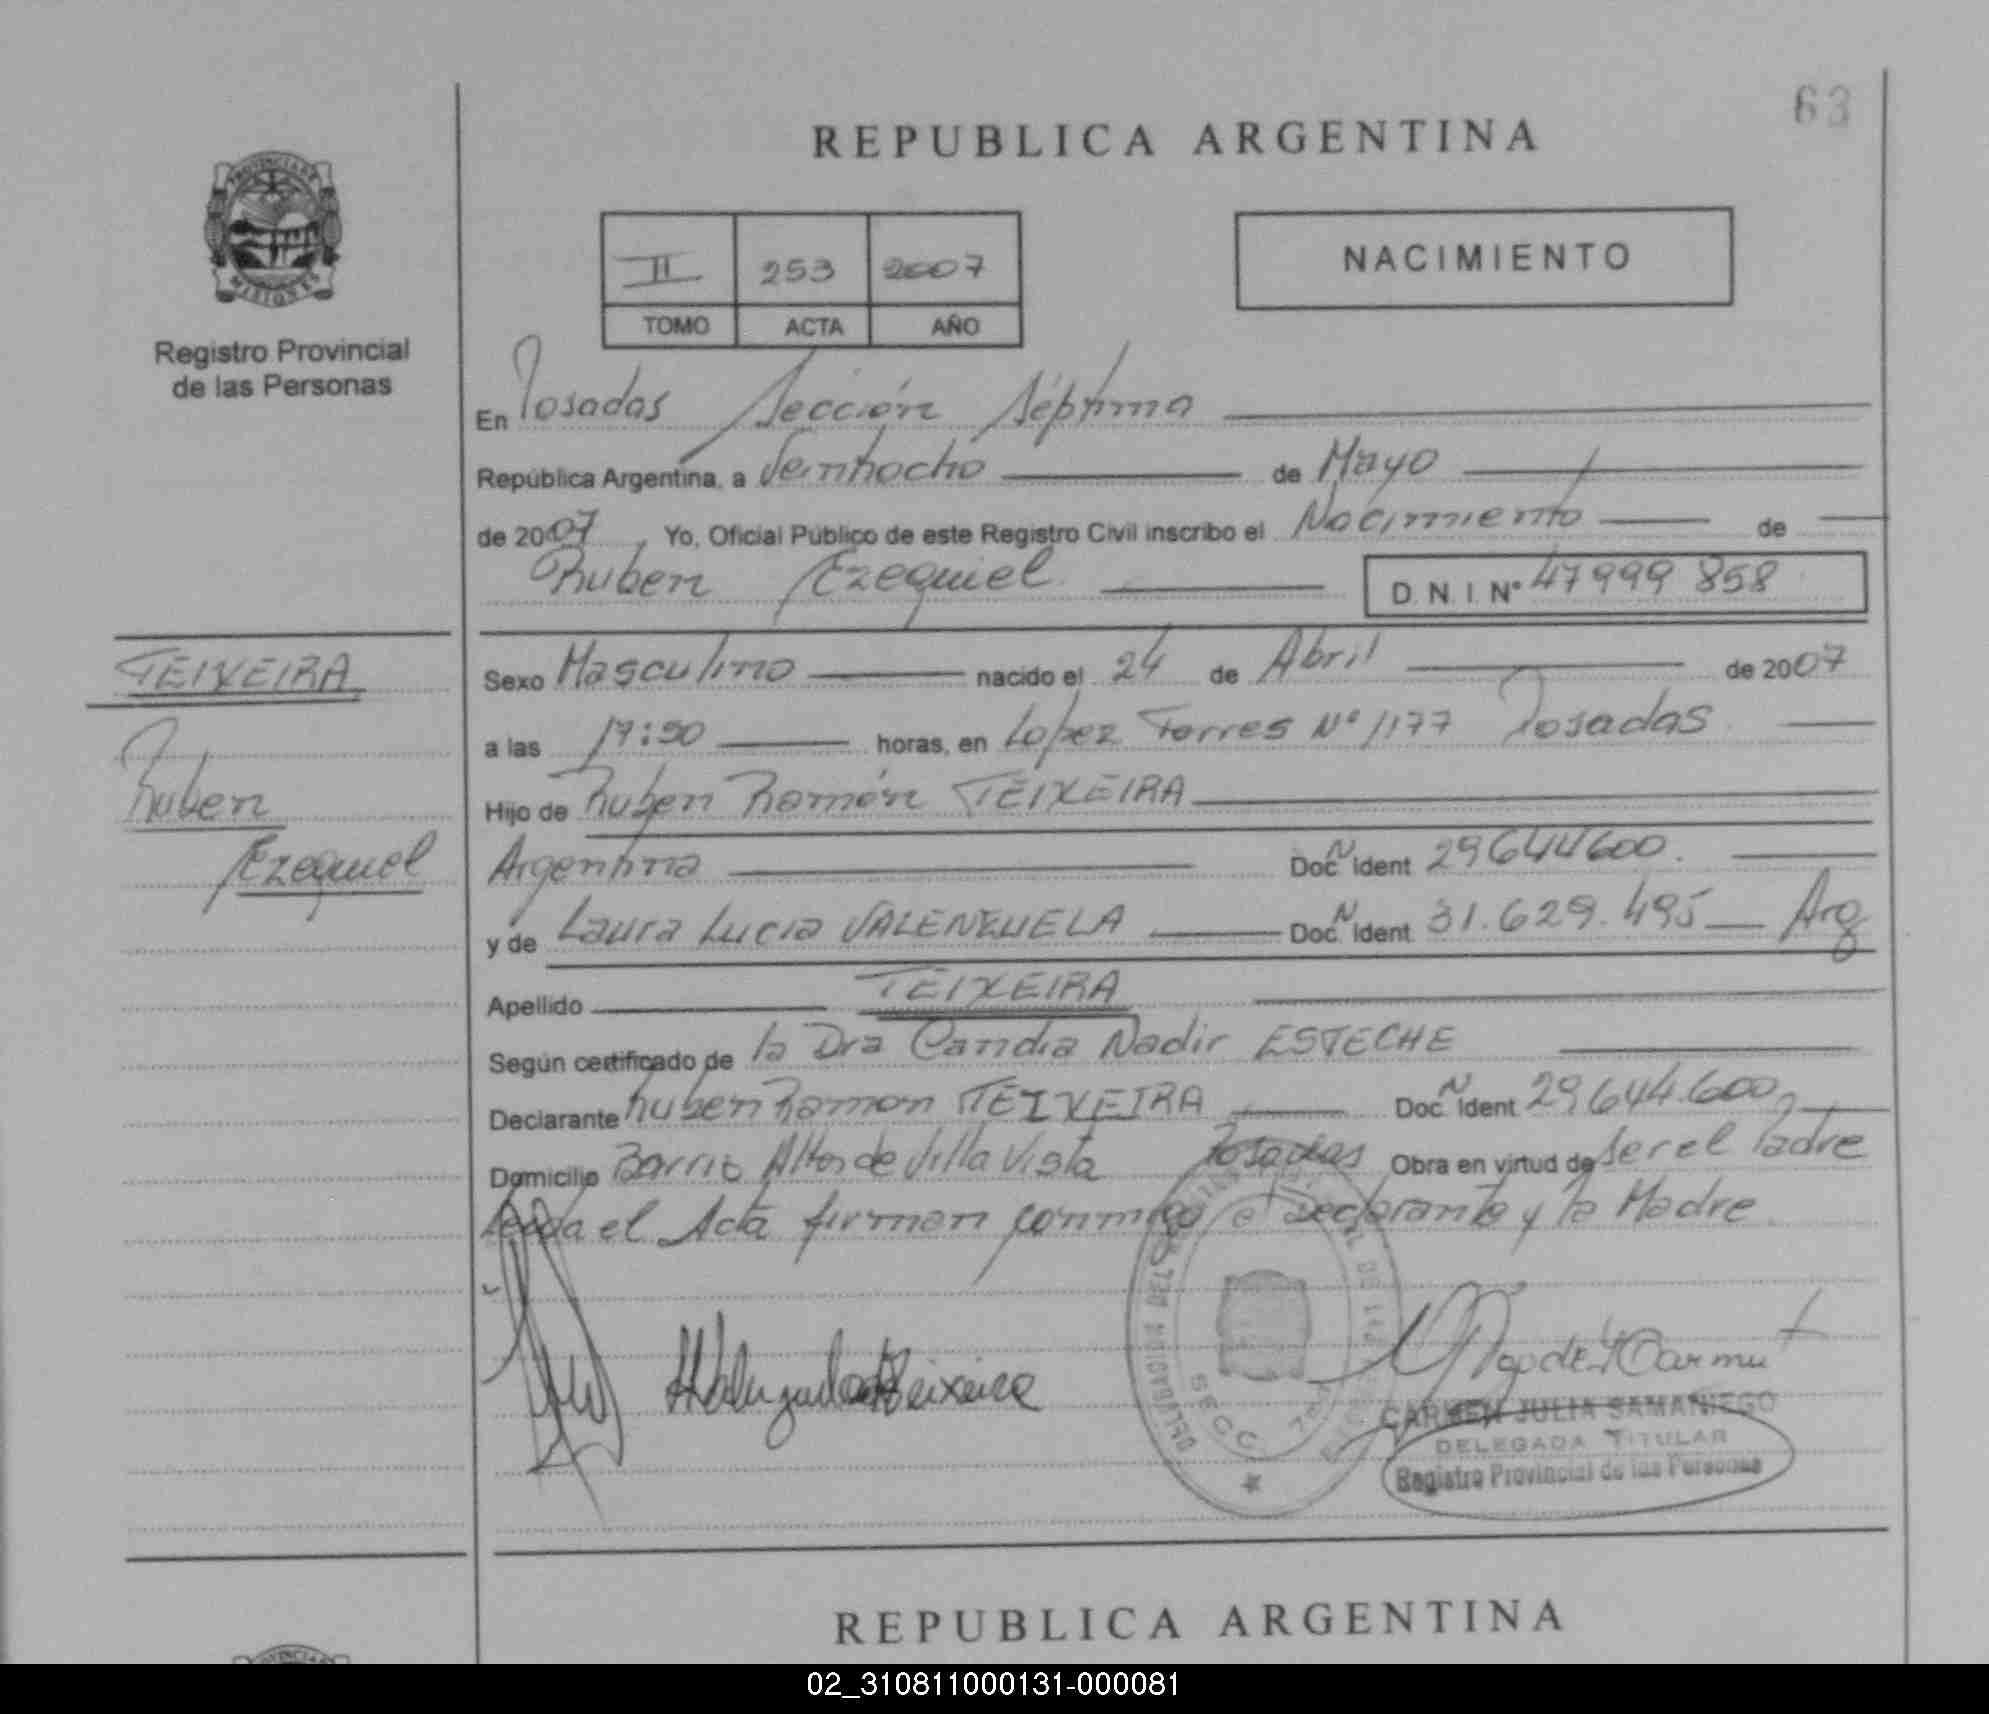 63
REPUBLICA ARGENTINA
PROVINCIA DE
MISIONES
Registro Provincial
de las Personas
II 253 2007
TOMO ACTA AÑO
NACIMIENTO
En Posadas Sección Séptima
República Argentina, a Veintiocho de Mayo
de 2007, Yo, Oficial Público de este Registro Civil inscribo el Nacimiento de
Ruben Ezequiel D.N.I. Nº 47999858
TEIXEIRA
Ruben
Ezequiel
Sexo Masculino nacido el 24 de Abril de 2007
a las 17:50 horas, en Lopez Torres Nº 1177 Posadas
Hijo de Ruben Ramón TEIXEIRA
Argentina Doc. N Ident 29644600.
y de Laura Lucia VALENZUELA Doc. N Ident 31.629.495 Arg
Apellido TEIXEIRA
Según certificado de la Dra Candia Nadir ESTECHE
Declarante Ruben Ramon TEIXEIRA Doc. N Ident 29.644.600
Domicilio Barrio Altos de Villa Vista Posadas Obra en virtud de ser el Padre
Leida el Acta firman conmigo el Declarante y la Madre
SECC. 7
CARMEN JULIA SAMANIEGO
DELEGADA TITULAR
Registro Provincial de las Personas
REPUBLICA ARGENTINA
02_310811000131-000081